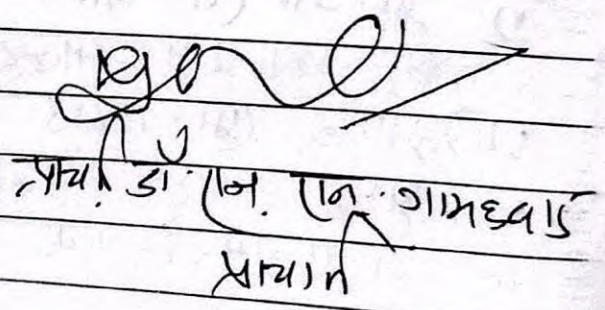 प्राचार्य डॉ. एन. एन. गायकवाड
प्राचार्य